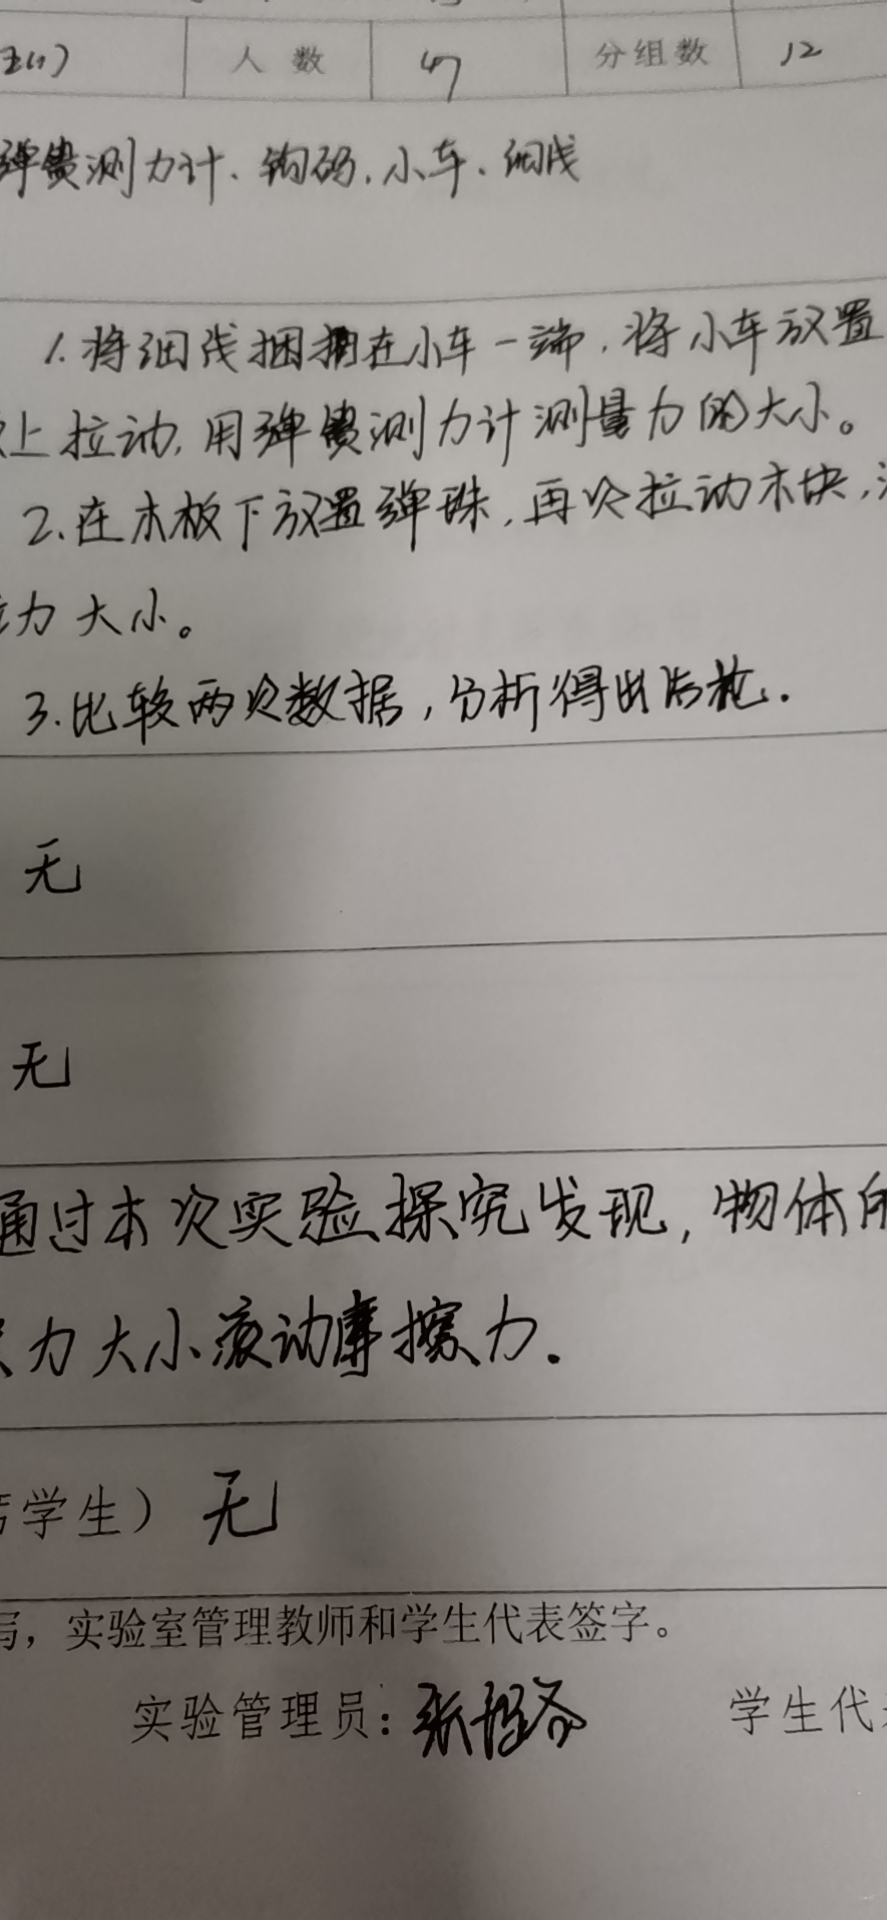 人数 47 分组数 12
弹贵测力计、钩码、小车、细线
1.将细线捆绑在小车一端,将小车放置
上拉动,用弹贵测力计测量力的大小。
2.在木板下放置弹珠,再次拉动木块,
力大小。
3.比较两次数据,分析得出结
无
无
通过本次实验探究发现,物体
力大小滚动摩擦力.
学生) 无
写,实验室管理教师和学生代表签字。
实验管理员: 张 学生代